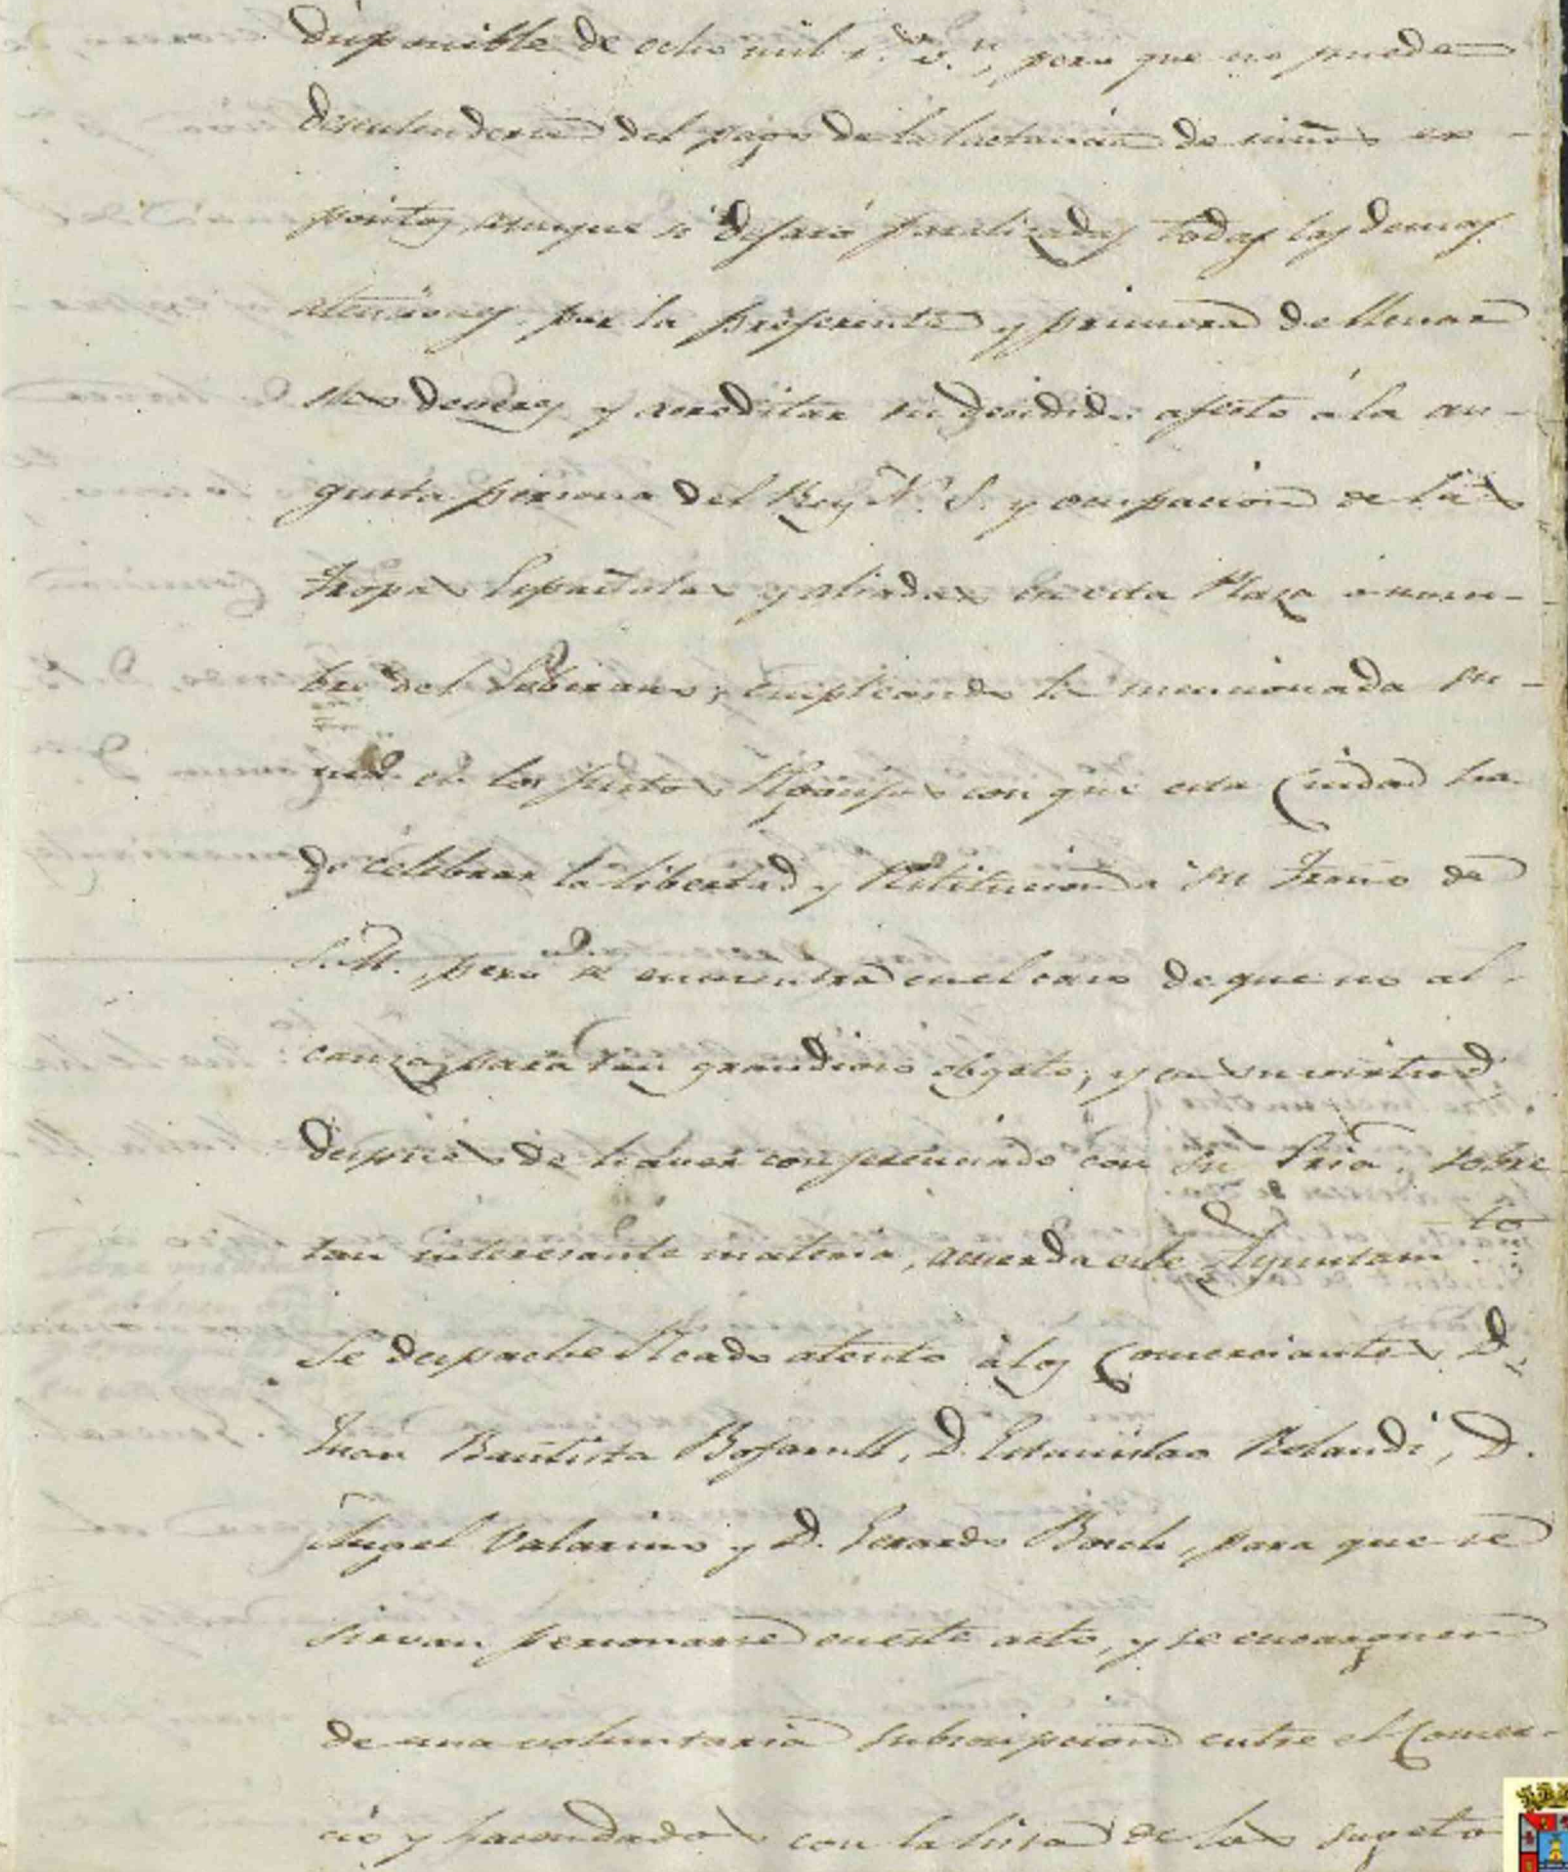 disponible de ocho mil r.s v.n, pero que no puede
desentenderse del pago de la lactancia de niños ex-
positos, aunque si dejará paralizadas todas las demas
atenciones, por la preferente y primera de llenar
sus deveres y acreditar su decidido afecto á la au-
gusta persona del Rey N. S. y ocupacion de las
tropas Españolas y aliadas en esta Plaza á nom-
bre del Soberano; empleando la mencionada su-
ma en los justos regocijos con que esta Ciudad ha
de celebrar la libertad y restitucion a su trono de
S. M., pero se encuentra en el caso de que no al-
canza para tan grandioso objeto; y en su virtud
despues de haver conferenciado con su Sria. sobre
tan interesante materia, acuerda este Ayuntam.to
Se despache recado atento á los Comerciantes D.
Juan Bautista Bofarull, D. Estanislao Rolandi, D.
Angel Valarino y D. Gerardo Bosch, para que se
sirvan personarse en este acto, y se encarguen
de una voluntaria subscripcion entre el Comer-
cio y hacendados con la lista de los sugeto